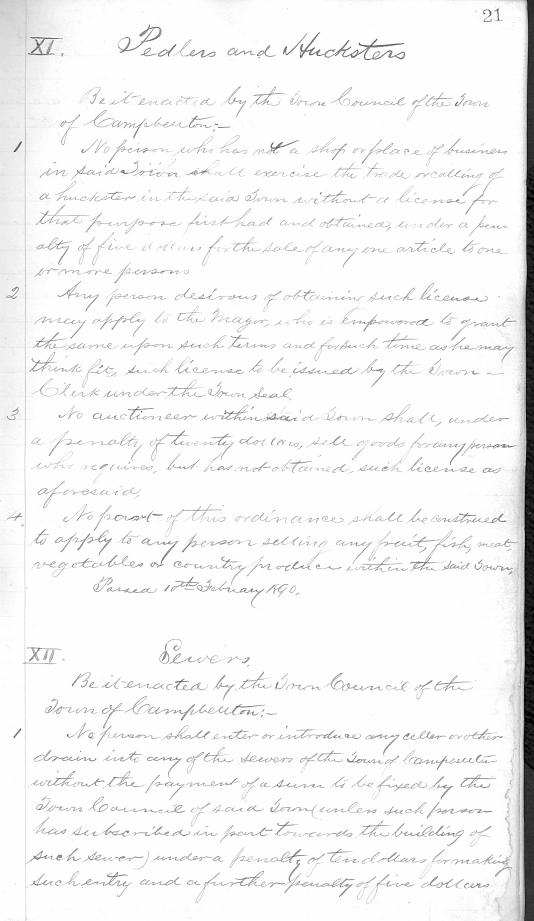 21
XI. Pedlers and Hucksters
Be it enacted by the Town Council of the Town
of Campbellton:-
1 No person who has not a shop or place of business
in said Town shall exercise the trade or calling of
a huckster in the said Town without a license for
that purpose first had and obtained, under a pen
alty of five dollars for the sale of any one article to one
or more persons
2 Any person desirous of obtaining such license
may apply to the Mayor, who is empowered to grant
the same upon such terms and for such time as he may
think fit, such license to be issued by the Town -
Clerk under the Town Seal.
3 No auctioneer within said Town shall, under
a penalty, of twenty dollars, sell goods for any person
who requires, but has not obtained, such license as
aforesaid,
4. No part of this ordinance, shall be construed
to apply to any person selling any fruit, fish, meat,
vegetables or country produce within the said Town,
Passed 10th February 1890.
XII. Sewers.
Be it enacted by the Town Council of the
Town of Campbellton:-
1 No person shall enter or introduce any celler or other
drain into any of the sewers of the Town of Campbellton
without the payment of a sum to be fixed by the
Town Council of said Town (unless such person
has subscribed in part towards the building of
such sewer) under a penalty of ten dollars for making
such entry and a further penalty of five dollars